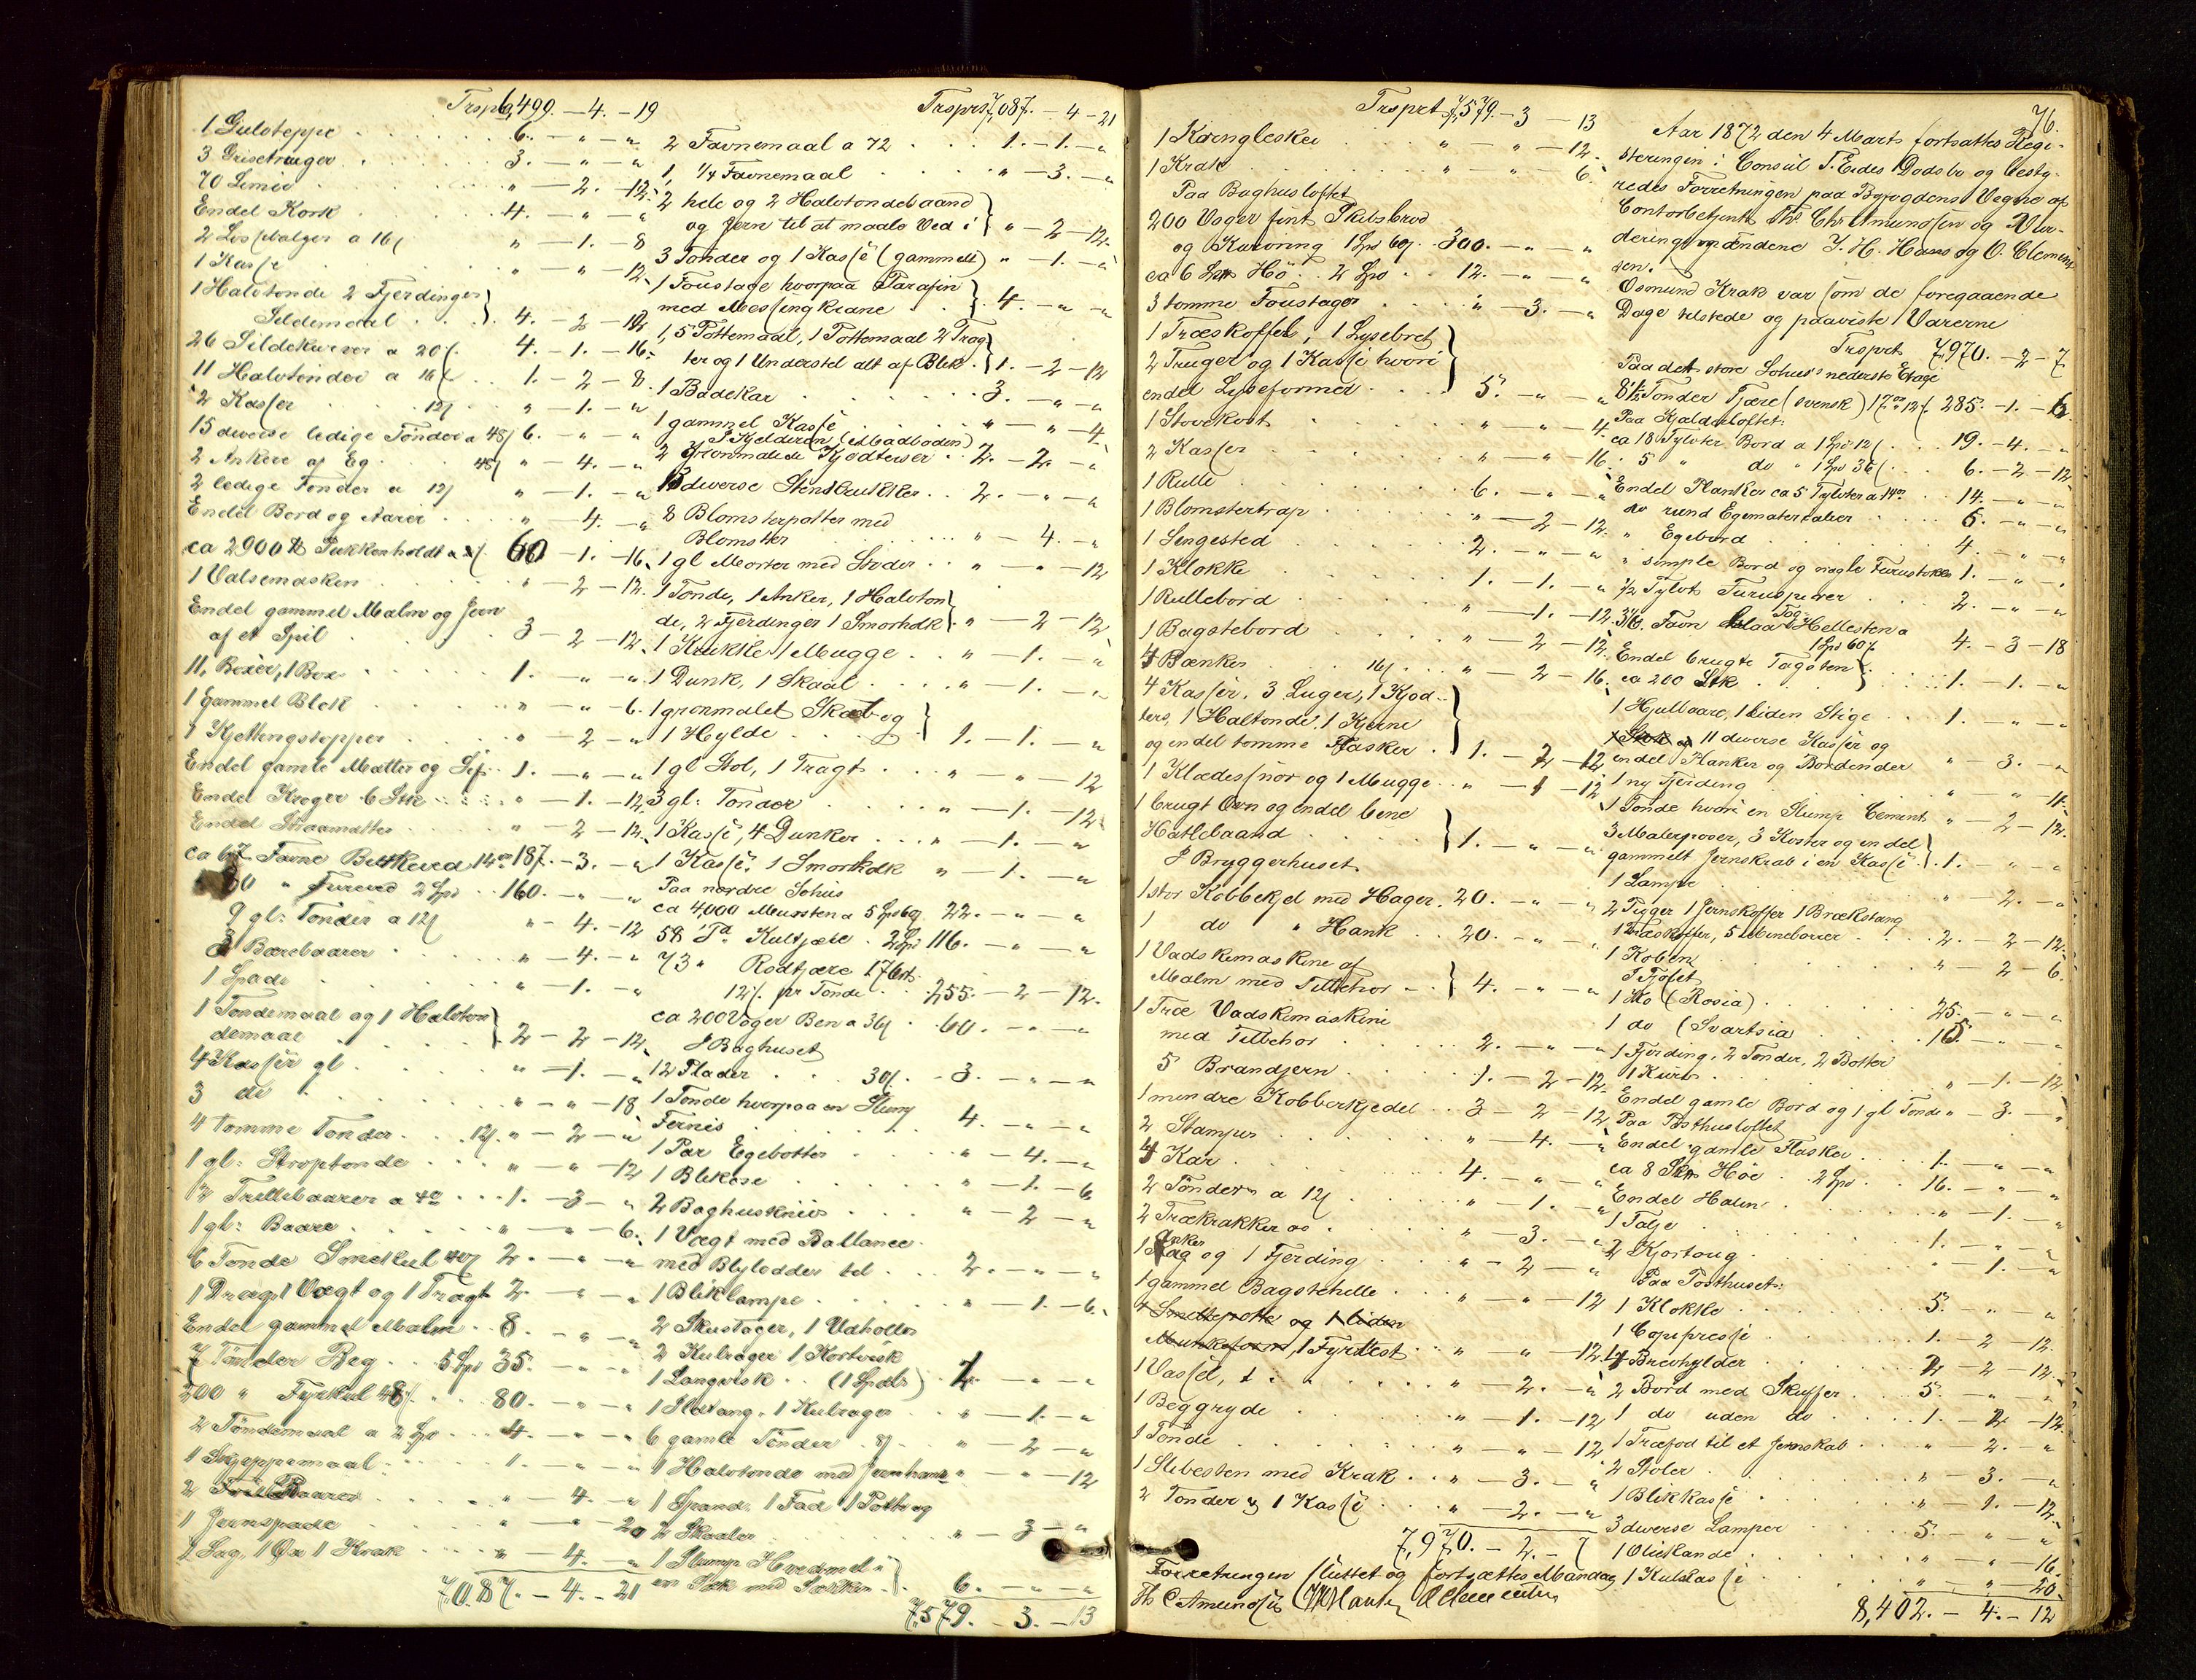 Trsprt 6,490. – 4. – 19
1 Gulvteppe . . . 6. – " – "
3 Grisetruger . . . 3. – " – "
70 Limier . . . " – 2. – 12.
Endel Kork . . . 4. – " – "
2 Lispbalger a 16 ſ " – 1. – 8
1 Kasse . . . " – " – 12.
1 Halvtønde 2 Fjerdinger
Sildemaal . . . 4. – 2 – 12
26 Sildekurver a 20 ſ. 4. – 1. – 16.
11 Halvtønder a 16 ſ . . 1. – 2 – 8.
2 Kasser . . . 12 ſ " – 1. – "
15 diverse ledige Tønder a 48 ſ 6. – " – "
2 Ankere af Eg . . 48 ſ " – 4. – "
2 ledige Tønder a 12 ſ " – 1. – "
Endel Bord og Aarer . . . " 4. – "
ca 2900 ℔ Pukkenholdt a 2 ſ. 60 – 1. – 16.
1 Valsemaskin . . . " – 2 – 12.
Endel gammel Malm og Jern
af et Spil . . . 3 – 2 – 12.
11. Boxer, 1 Box . . . 1. – " – "
1 gammel Blok . . . " – " – 6.
1 Kjettingstopper . . . " – 2 – "
Endel gamle Matter og Sef. 1. – " – "
Endel Kroger 6 Stk . . . " – 1. – 12
Endel Straamatter . . . " – 2 – 12.
ca 67 Favne Birkeved 14 ort 187. – 3. – "
80 " Fureved 2 Spd . . 160. – " – "
9 gl: Tønder a 12 ſ " – 4. – 12
3 Bærebaarer . . . " – 4. – "
1 Spade . . . " – 1. – "
1 Tøndemaal og 1 Halvtøn
demaal . . . 2 – 2 – 12.
4 Kasser gl . . . " – 1. – "
3 do . . . " – " – 18
4 tomme Tønder . . 12 ſ. " – 2 – "
1 gl: Stroptønde . . . " – " – 12
12 Trillebaarer a 40 . . . 1. – 3 – "
1 gl: Baare . . . " – " – 6.
6 Tønde Smekul 40 ſ 2. – " – "
1 Dræg, 1 Vægt og 1 Tragt 2. – " – "
Endel gammel Malm . . 8. – " – "
7 Tønder Beg . . 5 Spd 35. – " – "
200 " Fyrkul 48 ſ. " 80. – " – "
2 Tøndemaal a 2 Spd . . . 4. – " – "
1 Skjeppemaal . . . 1. – " – "
2 Baarer . . . " – 4. – "
1 Jernspade . . . " – " – 20
1 Sag, 1 Øx 1 Krak . . . " – 4. – "
7,087. – 4. – 21
Trsprt 7,087. – 4 – 21
2 Favnemaal a 72 . . . 1. – 1. – "
1, 1/4 Favnemaal . . . " – 3. – "
2 hele og 2 Halvtøndebaand
og Jern til at maale Ved i " – 2 – 12.
3 Tønder og 1 Kasse (gammelt) " – 1. – "
1 Foustage hvorpaa Parafin
med Messingkrane . . 4. – " – "
1, 5 Pottemaal, 1 Pottemaal 2 Trag
ter og 1 Understel alt af Blik. 1. – 2 – 12
1 Badekar . . . 3. – " – "
1 gammel Kasse . . . " – " – 4
I Kjelderen (Madboden)
2 Grønmalede Kjødteiner . . 2. – 2. – "
13 diverse Stenkrukker . . 2. – " – "
8 Blomsterpotter med
Blomster . . . " – 4. – "
1 gl Morter med Støder . . " – " – 12
1 Tønde, 1 Anker, 1 Halvtøn
de, 2 Fjerdinger 1 Smørholk . " – 2 – 12
1 Krukke 1 Mugge . . " – 1. – "
1 Dunk, 1 Skaal . . . . " – 1. – "
1 grønmalet Skab og
1 Hylde . . . 1. – 1. – "
1 gl Stol, 1 Tragt . . . " " – 12
3 gl: Tønder . . . " – 1. – 12.
1 Kasse, 4 Dunker . . . " – 1. – "
1 Kasse, 1 Smørholk " – 1. – "
Paa nordre Søhus
ca 4000 Mursten a 5 Spd 60 ſ 22. – " – "
58 Td Kultjære . 2 Spd 116. – " – "
73 " Rodtjære 17 Ort
12 ſ. pr Tønde . . 255. – 2 – 12.
ca 200 Voger Ben a 36 ſ . 60. – " – "
I Baghuset
12 Plader . . 30 ſ. . 3. – " – "
1 Tønde hvorpaa en Slump
Fernis . . . 4. – " – "
1 Par Egebøtter . . " – 4. – "
1 Blikøse . . . " – 1. – 6
2 Baghusknive . . . " – 2 – "
1 Vægt med Ballance
med Blylodder til . . . 2. – " – "
1 Bliklampe . . . " – 1. – 6.
2 Skustøger, 1 Udholter
2 Kulrager 1 Kortvisk
1 Langvisk . . (1 Spdlr) 2. – " – "
1 Ildtang, 1 Kulrager . " – 1. – "
6 gamle Tønder . 8 ſ . " – 2 – "
1 Halvtønde med Jernhank " – " – 12
1 Spand, 1 Fad 1 Potte og
2 Skaaler . . . " – 3 – "
1 Slump Hvedmel i
en Sæk med Sækken . 6. – " – "
7,579. – 3. – 13
76.
Trsprt 7,579. – 3 – 13
1 Korngleske . . . " – " – 12.
1 Krak . . . " – " – 6.
Paa Baghusloftet
200 Voger fint Skibsbrød
og Kavring 1 Spd 60 ſ. 300. – " – "
ca 6 Hø . . 2 Spd . . 12. – " – "
3 tomme Foustager . . . " – 3. – "
1 Træskoffel, 1 Lysebret
2 Truger og 1 Kasse hvori
endel Lyseformer . . . 5. – " – "
1 Stovekost . . . " – " – 4
2 Kasser . . . " – " – 16.
1 Rulle . . . 6. – " – "
1 Blomstertrap . . . " – 2 – 12.
1 Sengested . . . 2. – " – "
1 Klokke . . . 1. – 1. – "
1 Rullebord . . . " – 1. – 12.
1 Bagstebord . . . " – 2 – 12.
4 Bænker . . 16 ſ . . " – 2 – 16.
4 Kasser, 3 Luger, 1 Kjød-
1 Haltønde, 1 Kjerne
og endel tomme Flasker . 1. – 2 – 12
1 Klædesnor og 1 Mugge . . " – 1 – 12
1 brugt Ovn og endel bene
Hatlebaand . . . 1. – " – "
I Bryggerhuset
1 stor Kobbekjel med Hager . 20. – " – "
1 do " Hank . . 20. – " – "
1 Vadskemaskine af
Malm med Tilbehør . . 4. – " – "
1 Træ Vadskemaskine
med Tilbehør . . . 2. – " – "
5 Brandjern . . . 1. – 2 – 12
1 mindre Kobberkjedel . . 3 – 2 – 12
2 Stamper . . . " – 4. – "
4 Kar . . . 4. – " – "
2 Tønder a 12 ſ . . . " – 1. – "
2 Trækrakker . . . " – 3. – "
1 Anker og 1 Fjerding . . . " – 2 – "
1 gammel Bagstehelle . . . " – " – 12
1 Smeltepotte og 1 liden
Munkeform, 1 Fyrlest . . " – " – 12.
1 Vassel, . . . " – 2. – "
1 Beggryde . . . " – 1. – 12
1 Tønde . . . " – " – 12
1 Slibesten med Krak . . " – 3. – "
2 Tønder og 1 Kasse . . . " – 2. – "
7,970. – 2. – 7
Forretningen sluttet og fortsættes Mandag
Th C Amundsen O Clementsen
Aar 1872 den 4 Marts fortsattes Regi-
streringen i Consul T. Eides Dødsbo og besty-
redes Forretningen paa Byfogdens Vegne af
Contorbetjent Th: Chr Amundsen og Vur-
deringsmændene J. H. Hans og O. Clement
sen.
Osmund Krak var som de foregaaende
Dage tilstede og paaviste Varerne
Trsprt 7,970. – 2 – 7
Paa det store Søhus's nederste Etage
8½ Tønder Tjære (svensk) 17 ort 12 ſ. 285. – 1. – 6
Paa Kjalderloftet:
ca 18 Tylvter Bord a 1 Spd 12 ſ . . 19. – 4. – "
" 5 " do " 1 Spd 36 ſ . . 6. – 2 – 12
Endel Planker ca 5 Tylvter a 14 ort . . 14. – " – "
do rund Egematerialier . . . 6. – " – "
" Egebord . . . 4. – " – "
" simple Bord og nogle Furustokke 1. – " – "
½ Tylvt Furusperer . . . 2. – " – "
3⅛ Favn blaa Tag-Hellesten a
1 Spd 60 ſ 4. – 3 – 18
Endel brugte Tagsten
ca 200 Stk . . . 1. – 1. – "
1 Hjulbaare, 1 liden Stige . . 1. – " – "
11 diverse Kasser og
endel Planker og Bordender " – 3. – "
1 ny Fjerding . . . " – " – 18.
1 Tønde hvori en Slump Cement " – 2 – 12.
3 Malerprøver, 3 Koster og en del
gammelt Jernskrab i en Kasse . 1. – " – "
1 Lampe . . . " – 2. – "
2 Tigger 1 Jernskoffer 1 Brækstang
1 Træskoffer, 5 Mineborer . . . 2. – 2 – 12.
1 Koben . . . " – 2 – 6.
I Fjøset
1 Ko (Rosia) . . . 25. – " – "
1 do (Svartsia . . . 15. – " – "
1 Fjerding, 2 Tønder, 2 Bøtter
1 Kurv . . . " – 1. – 12
Endel gamle Bord og 1 gl Tønde " – 3. – "
Paa Posthusloftet
Endel gamle Flasker . . . 1. – " – "
ca 8 Høe . . 2 Spd . . 16. – " – "
Endel Halm . . . " – 1. – "
1 Talje . . . 1. – " – "
2 Kjortoug . . . " – 1. – "
Paa Posthuset:
1 Klokke . . . 5. – " – "
1 Copipresse . . . 1. – 2 – 12.
14 Brevhylder . . . 2 – 2 – 12.
2 Bord med Skuffer . . 5. – " – "
1 do uden do . . . 1. – 2 – 12.
1 Træfod til et Jernskab . . . " – 2. – "
2 Stoler . . . " – 3. – "
1 Blikkasse . . . " – 1. – 12.
3 diverse Lamper . . . 5. – " – "
1 Oliekande . . . " – " – 16.
1 Kulkasse . . . " – " – 20.
8,402. – 4. – 12